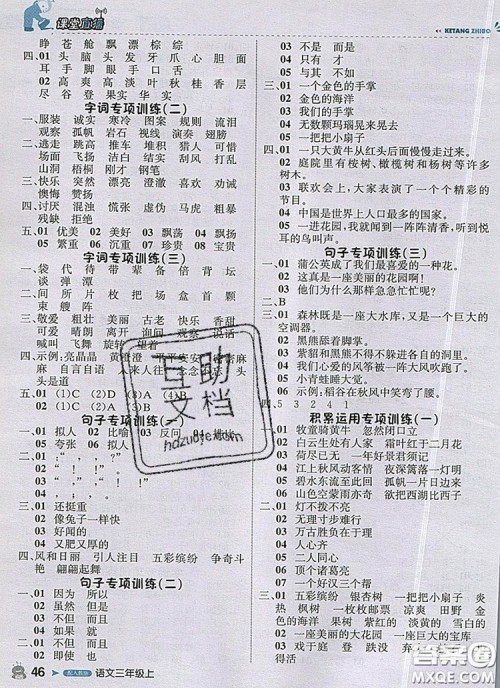 课堂直播
KETANG ZHIBO
睁 苍 舱 飘 漂 棕 综
四、01 脑 头 头 发 牙 爪 心 胆 面
耳 手 脚 眼 手 口 舌
02 高 爽 高 淡 叶 秋 桂 香 层
尽 谷 登 果 实 华 实
字词专项训练(二)
一、服装 诚实 寒冷 图案 规则 流泪
观察 孤帆 岩石 视线 演奏 翅膀
二、逃走 跳高 推车 堆积 猎人 可惜
场面 飞扬 洁白 结实 刮风 打乱
山洞 梧桐 刚才 钢笔
三、快乐 突然 漂亮 澄澈 喜欢 劝诫
懊悔 赞扬
四、讨厌 混浊 慌张 虚伪 马虎 粗暴
残缺 拒绝
五、01 优美 02 美好 03 飘荡 04 飘扬
05 繁重 06 沉重 07 珍贵 08 宝贵
字词专项训练(三)
一、袋 代 待 带 辈 备 倍 背 坛
谈 弹 潭
二、间 所 片 枚 把 场 盒 首 颗
束 艘
三、敬爱 粗壮 美丽 古老 欢快 美好
可爱 晴朗 离开 询问 观察 表演
喊叫 飞舞 旋转 望着
四、示例:亮晶晶 黄澄澄
头是道
五、01 (1)C (2)D (3)A
句子专项训练(一)
一、01 拟人 02 比喻 03 反问
05 夸张 06 拟人
三、01 还挺重
02 像兔子一样快
03 好的
04 又肥又厚的
四、风和日丽 引人注目 五彩缤纷 争奇斗
艳 翩翩起舞
句子专项训练(二)
一、01 因为 所以
02 虽然 但是
03 不但 而且
04 如果 就
05 不但 而且
46 语文三年级上
03 不是 而是
04 只有 才
05 与其 不如
三、01 一个金色的手掌
02 金色的海洋
03 我们的手掌
04 无数颗玛瑙晃来晃去
05 一把把小扇子
四、01 一只大黄牛从红头后面慢慢走过来。
02 庭院里有桉树、橄榄树和杨树等许多
树木。
03 联欢会上,大家表演了一个个精彩的
节目。
04 中国是世界上人口最多的国家。
05 一进花园,我就闻到一阵阵清香,听到悦
耳的鸟叫声。
句子专项训练(三)
一、01 蒲公英成了我们最喜爱的一种花。
02 这真是一座美丽的花园啊!
03 他们为什么那样急急忙忙呢?
二、B
三、01 森林既是一座大水库,又是一个巨大的
空调器。
02 黑熊舔着脚掌。
03 紫貂和黑熊不得不躲进各自的洞里。
04 我们的心爱的风筝被一阵大风吹跑了。
05 小青蛙睡大觉。
06 示例:稻谷在秋风中笑弯了腰。
四、5 3 2 4 1
积累运用专项训练(一)
一、01 牧童骑黄牛 忽然闭口立
02 白云生处有人家 霜叶红于二月花
03 荷尽已无 一年好景君须记
04 江上秋风动客情 夜深篱落一灯明
05 碧水东流至此回 孤帆一片日边来
06 山色空蒙雨亦奇 欲把西湖比西子
二、01 灯不拨不亮
02 无理寸步难行
03 万古胜负在于理
04 人心齐
05 二人同心
06 顶个诸葛亮
07 一个好汉三个帮
三、01 五彩缤纷 银杏树 一把把小扇子 炎
热 黄色 凉爽 田野 金色